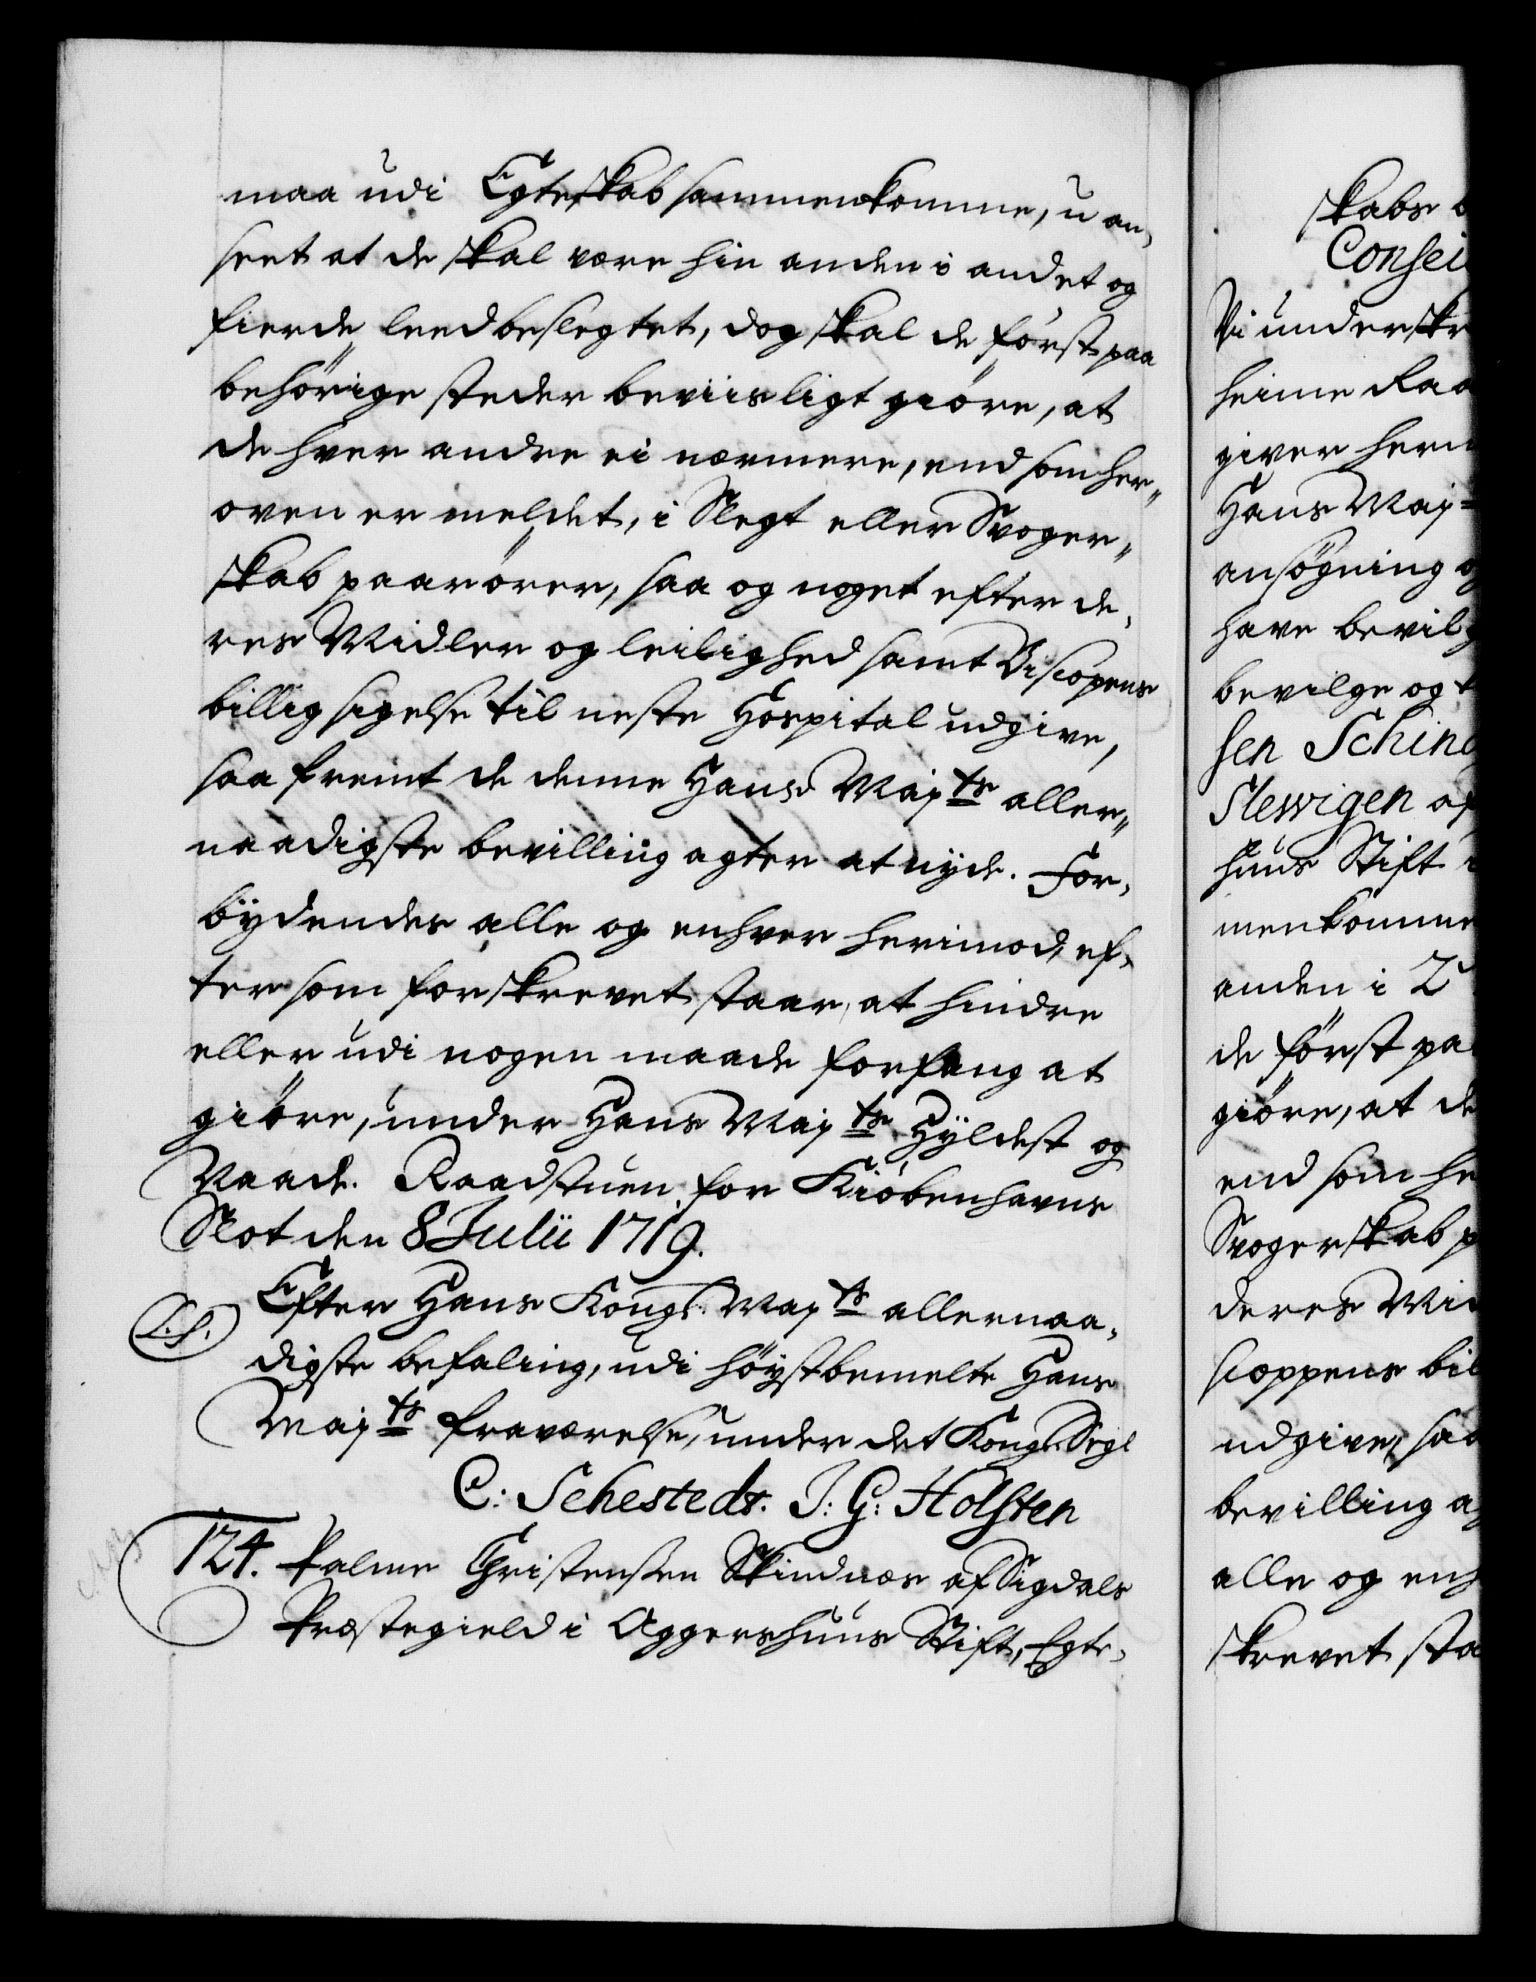 maa udi Egteskab sammenkomme, u an,
seet at de skal være hin anden i andet og
fierde leed beslegtet, dog skal de först paa
behörige steder beviisligt giöre, at
de hver andre ei nærmere, end som her„
oven er meldet, i Slegt eller Svoger„
skab paarörer, saa og noget efter de,
res Midler og leilighed samt Biscopens
billig sigelse til neste Hospital udgive,
saa fremt de denne Hans Majts aller„
naadigste bevilling agter at nyde. For,
bÿdendes alle og enhver herimod, ef,
ter som forskrevet staar, at hindre
eller udi nogen maade forfang at
giöre, under Hans Majts Hÿldest og
Naade. Raadstuen for Kiöbenhavns
Slot den 8 Julii 1719.
L.S.
Efter Hans Kongl. Majts allernaa,
digste befaling, udi höÿstbemelte Hans
Majts fraværelse, under det Kongl. Segl
C: Sehestedt. J: G: Holsten
124. Palme Christensen Skindnæs af Sigdals
Præstegield i Aggershuus Stift, Egte,
skabs
Consei
Vi underskr
heime Raa
giver her
Hans Maj
ansögning
have bevilg
bevilge og
sen Schin
Slewigen af
huus Stift
menkomme
anden i 2
de först pa
giöre, at de
end som he
Svogerskab p
deres Mi
scoppens bil
udgive, saa
bevilling a
alle og enh
skrevet sta